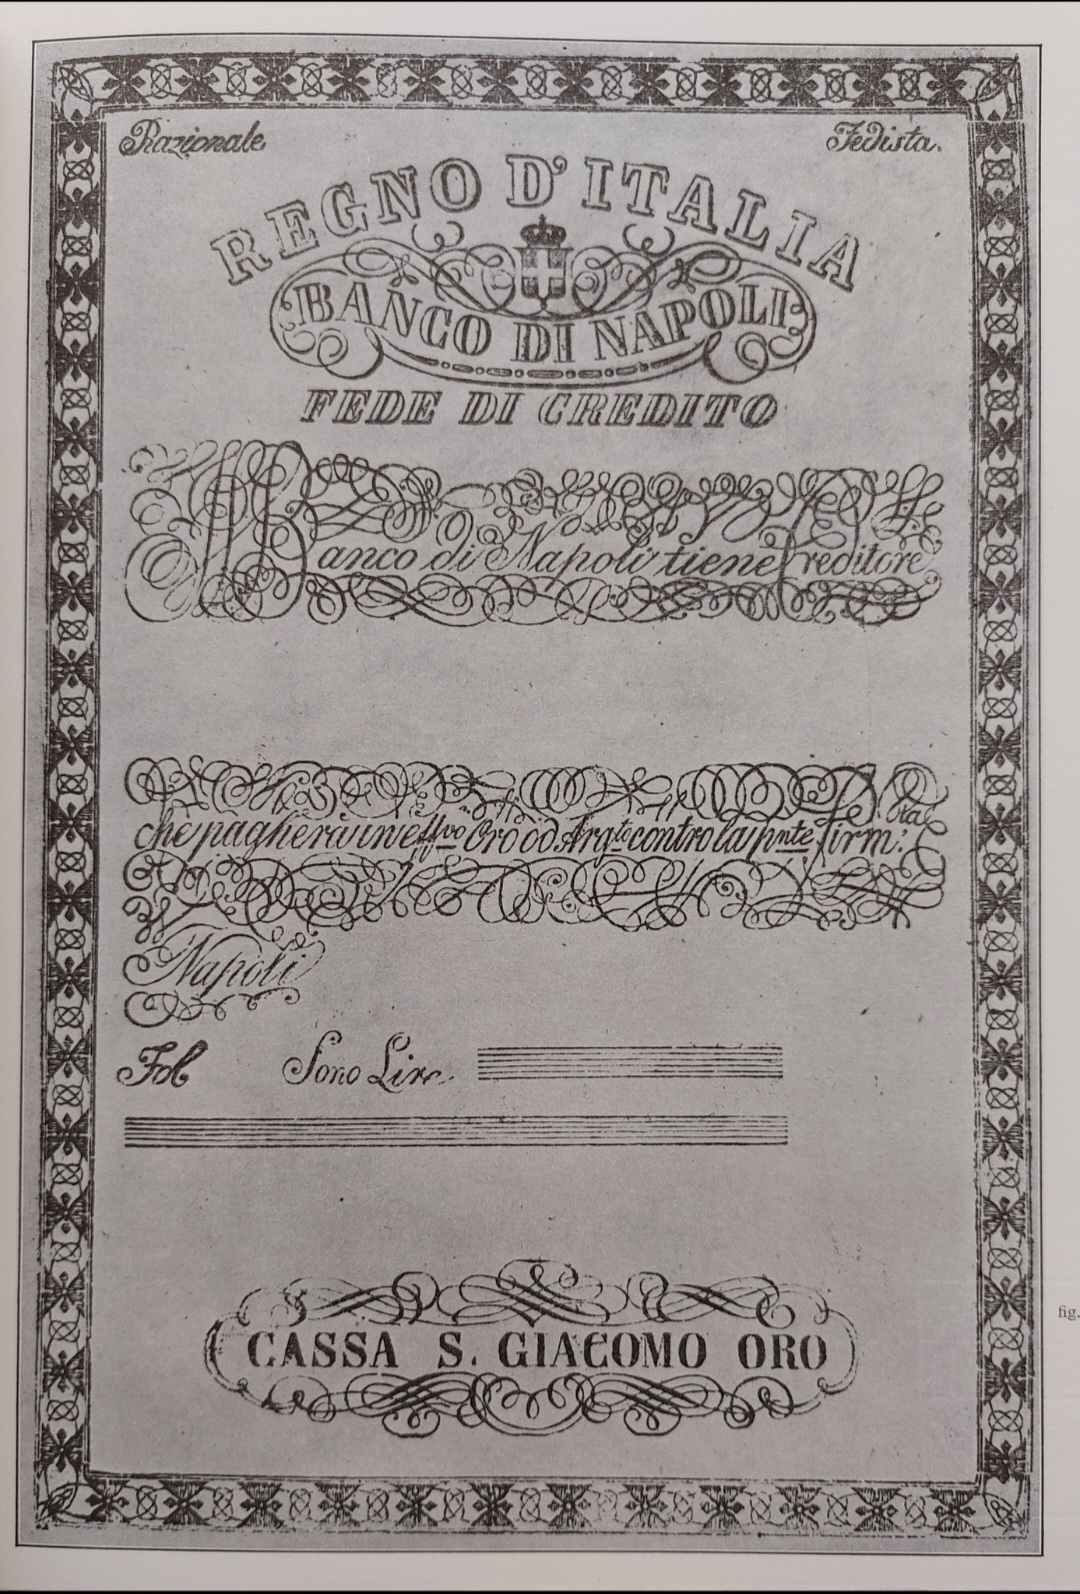 Razionale
Fedista.
REGNO D'ITALIA
BANCO DI NAPOLI
FEDE DI CREDITO
Banco di Napoli tiene Creditore
che pagherà in effvo Oro od Argto contro la pnte firm:
Napoli
Fol
Sono Lire
CASSA S. GIACOMO ORO
fig.